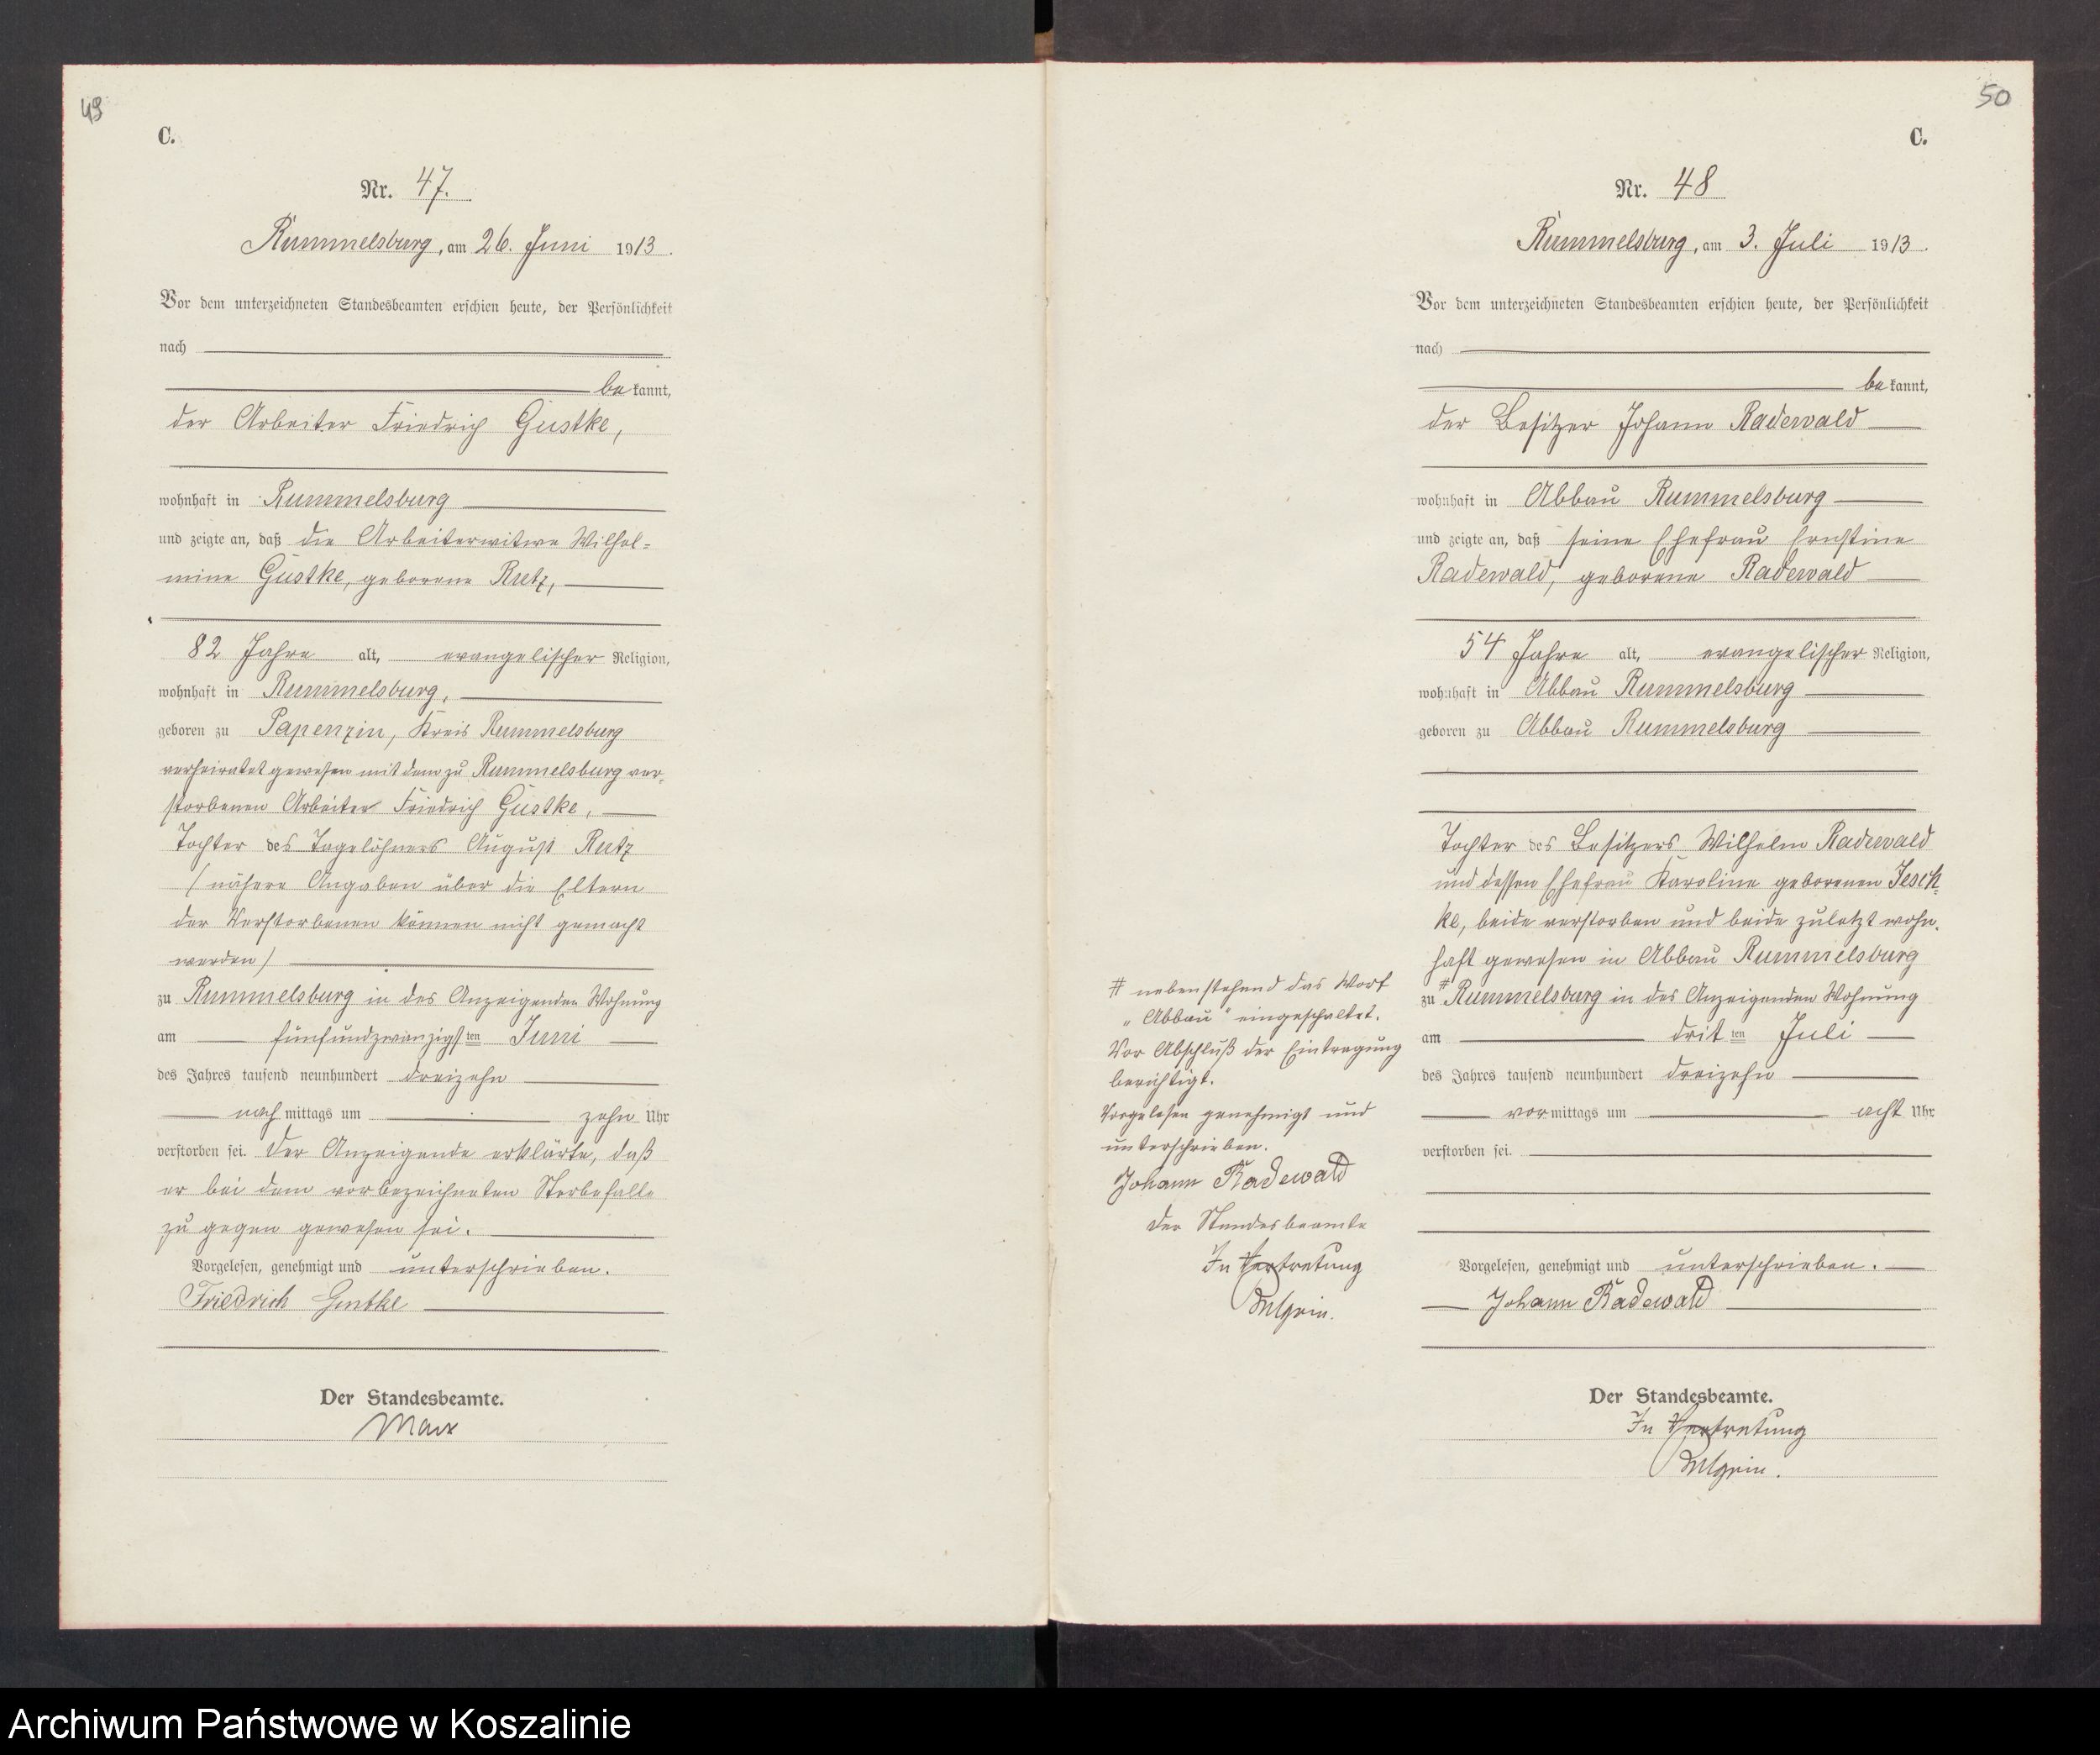 49
C.
Nr. 47.
Rummelsburg, am 26. Juni 1913.
Vor dem unterzeichneten Standesbeamten erschien heute, der Persönlichkeit
nach
be kannt,
der Arbeiter Friedrich Gustke,
wohnhaft in Rummelsburg
und zeigte an, daß die Arbeiterwitwe Wilhel=
mine Gustke, geborene Rutz,
82 Jahre alt, evangelischer Religion,
wohnhaft in Rummelsburg,
geboren zu Papenzin, Kreis Rummelsburg
verheiratet gewesen mit dem zu Rummelsburg ver-
storbenen Arbeiter Friedrich Gustke,
Tochter des Tagelöhners August Rutz
(nähere Angaben über die Eltern
der Verstorbenen können nicht gemacht
werden)
zu Rummelsburg in des Anzeigenden Wohnung
am fünfundzwanzigsten Juni
des Jahres tausend neunhundert dreizehn
nach mittags um zehn Uhr
verstorben sei. Der Anzeigende erklärte, daß
er bei dem vorbezeichneten Sterbefalle
zu gegen gewesen sei.
Vorgelesen, genehmigt und unterschrieben.
Friedrich Gustke
Der Standesbeamte.
50
C.
Nr. 48
Rummelsburg, am 3. Juli 1913.
Vor dem unterzeichneten Standesbeamten erschien heute, der Persönlichkeit
nach
be kannt,
der Besitzer Johann Radewald
wohnhaft in Abbau Rummelsburg
und zeigte an, daß seine Ehefrau Ernstine
Radewald, geborene Radewald
54 Jahre alt, evangelischer Religion,
wohnhaft in Abbau Rummelsburg
geboren zu Abbau Rummelsburg
Tochter des Besitzers Wilhelm Radewald
und dessen Ehefrau Karoline geborenen Jesch-
ke, beide verstorben und beide zuletzt wohn-
haft gewesen in Abbau Rummelsburg
zu # Rummelsburg in des Anzeigenden Wohnung
am dritten Juli
des Jahres tausend neunhundert dreizehn
vor mittags um acht Uhr
verstorben sei.
Vorgelesen, genehmigt und unterschrieben.
Johann Radewald
Der Standesbeamte.
In Vertretung
# nebenstehend das Wort
"Abbau" eingeschaltet.
Vor Abschluß der Eintragung
berichtigt.
Vorgelesen genehmigt und
unterschrieben.
Johann Radewald
Der Standesbeamte
In Vertretung
Archiwum Państwowe w Koszalinie